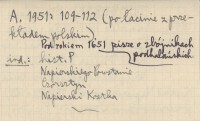 A, 1951: 109-112 (po łacinie z prze-
kładem polskim),
Pod rokiem 1651 pisze o zbójnikach
podhalańskich.
i.d.: hist. P
Napierskiego Powstanie
Czorsztyn
Napierski Kostka